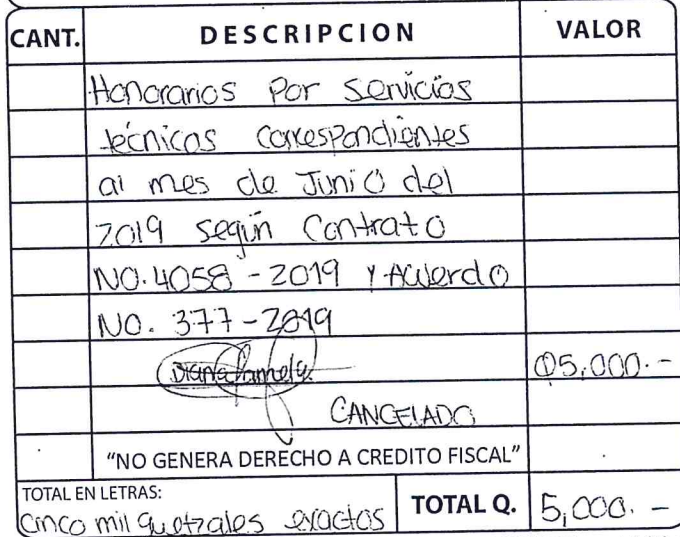 CANT. DESCRIPCION VALOR
Honorarios por servicios
técnicos correspondientes
al mes de Junio del
2019 según Contrato
NO. 4058 - 2019 Y Acuerdo
NO. 377-2019
Diana Pamela. Q5,000.-
CANCELADO
"NO GENERA DERECHO A CREDITO FISCAL"
TOTAL EN LETRAS:
Cinco mil quetzales exactos TOTAL Q. 5,000. -